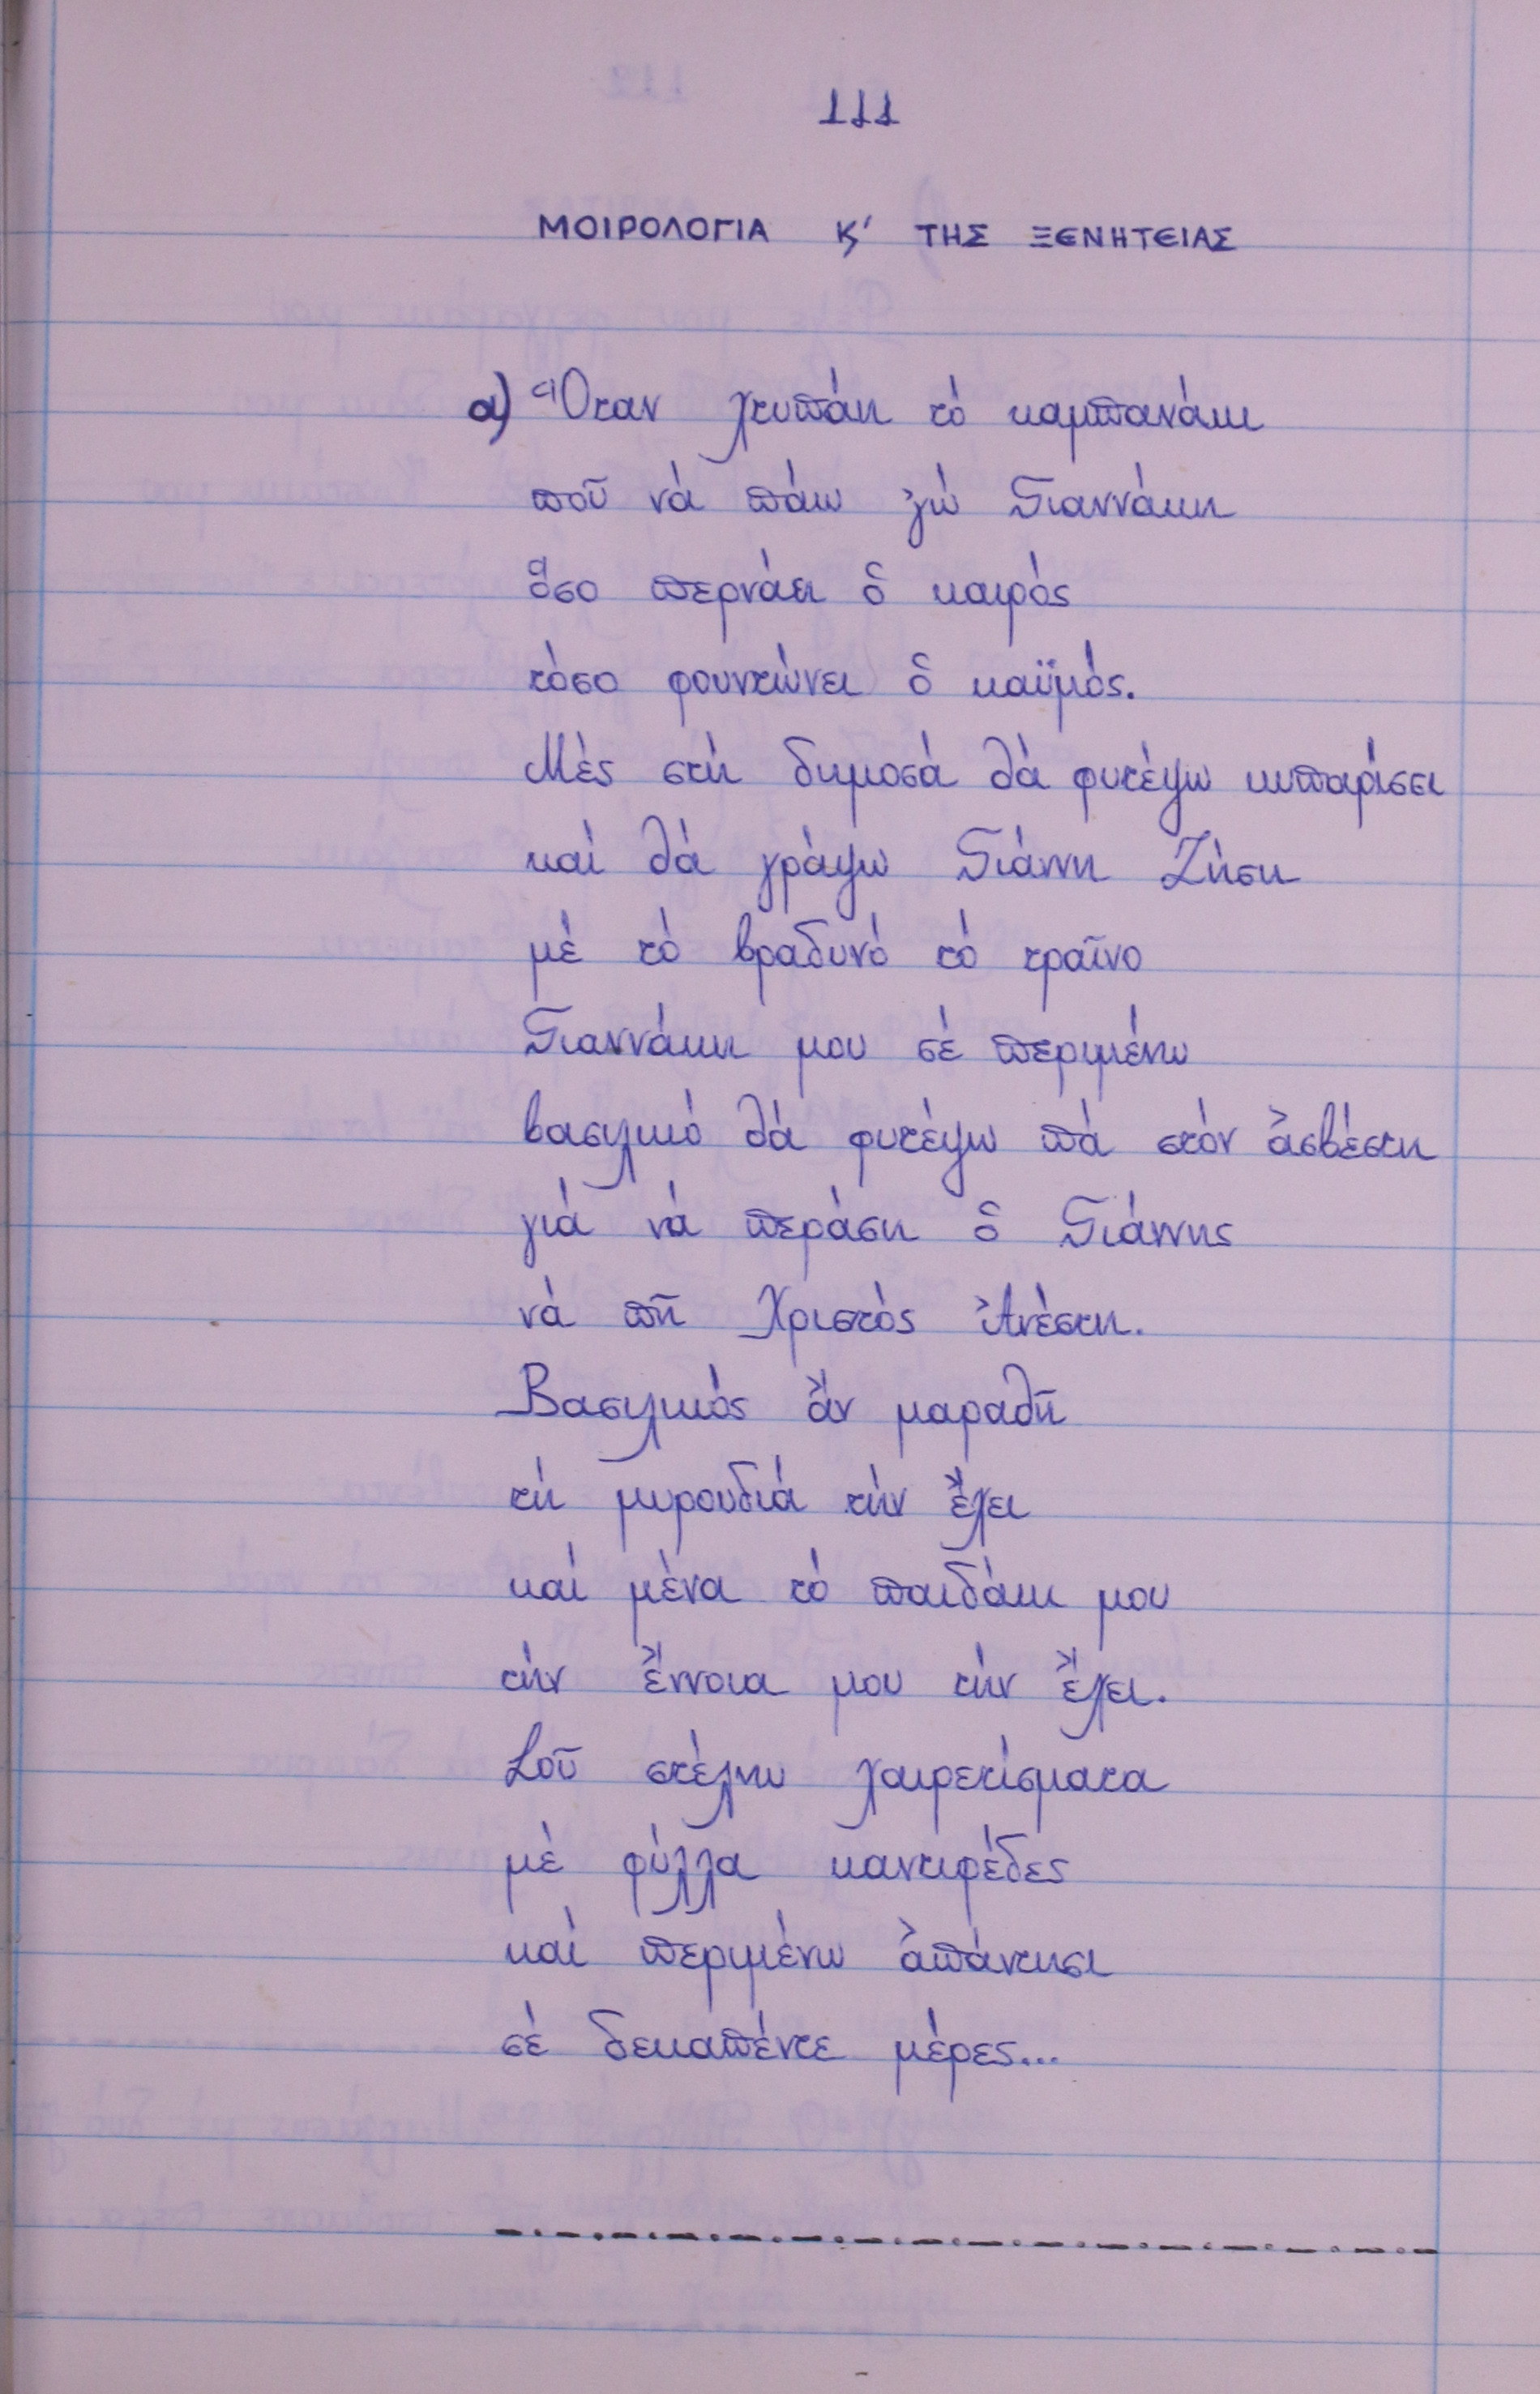 111
ΜΟΙΡΟΛΟΓΙΑ Κ' ΤΗΣ ΞΕΝΗΤΕΙΑΣ
α) Ὅταν χτυπάη τό καμπανάκι
ποῦ νά πάω 'γώ Γιαννάκη
ὅσο περνάει ὁ καιρός
τόσο φουντώνει ὁ καϋμός.
Μές στή δημοσά θά φυτέψω κυπαρίσσι
καί θά γράψω Γιάννη Ζήση
μέ τό βραδυνό τό τραῖνο
Γιαννάκη μου σέ περιμένω
βασιλικό θά φυτέψω πά στόν ἀσβέστη
γιά νά περάση ὁ Γιάννης
νά πῆ Χριστός Ἀνέστη.
Βασιλικός ἄν μαραθῆ
τή μυρουδιά τήν ἔχει
καί μένα τό παιδάκι μου
τήν ἔννοια μου τήν ἔχει.
Σοῦ στέλνω χαιρετίσματα
μέ φύλλα κατιφέδες
καί περιμένω ἀπάντησι
σέ δεκαπέντε μέρες...